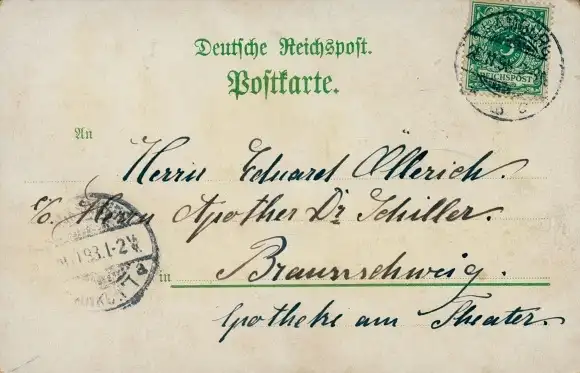 Deutsche Reichspost.
Postkarte.
REICHSPOST
An
Herrn Eduard Öllerich.
Herrn Apother Dr Schiller.
93. 1-2
in Braunschweig.
Apotheke am Theater.